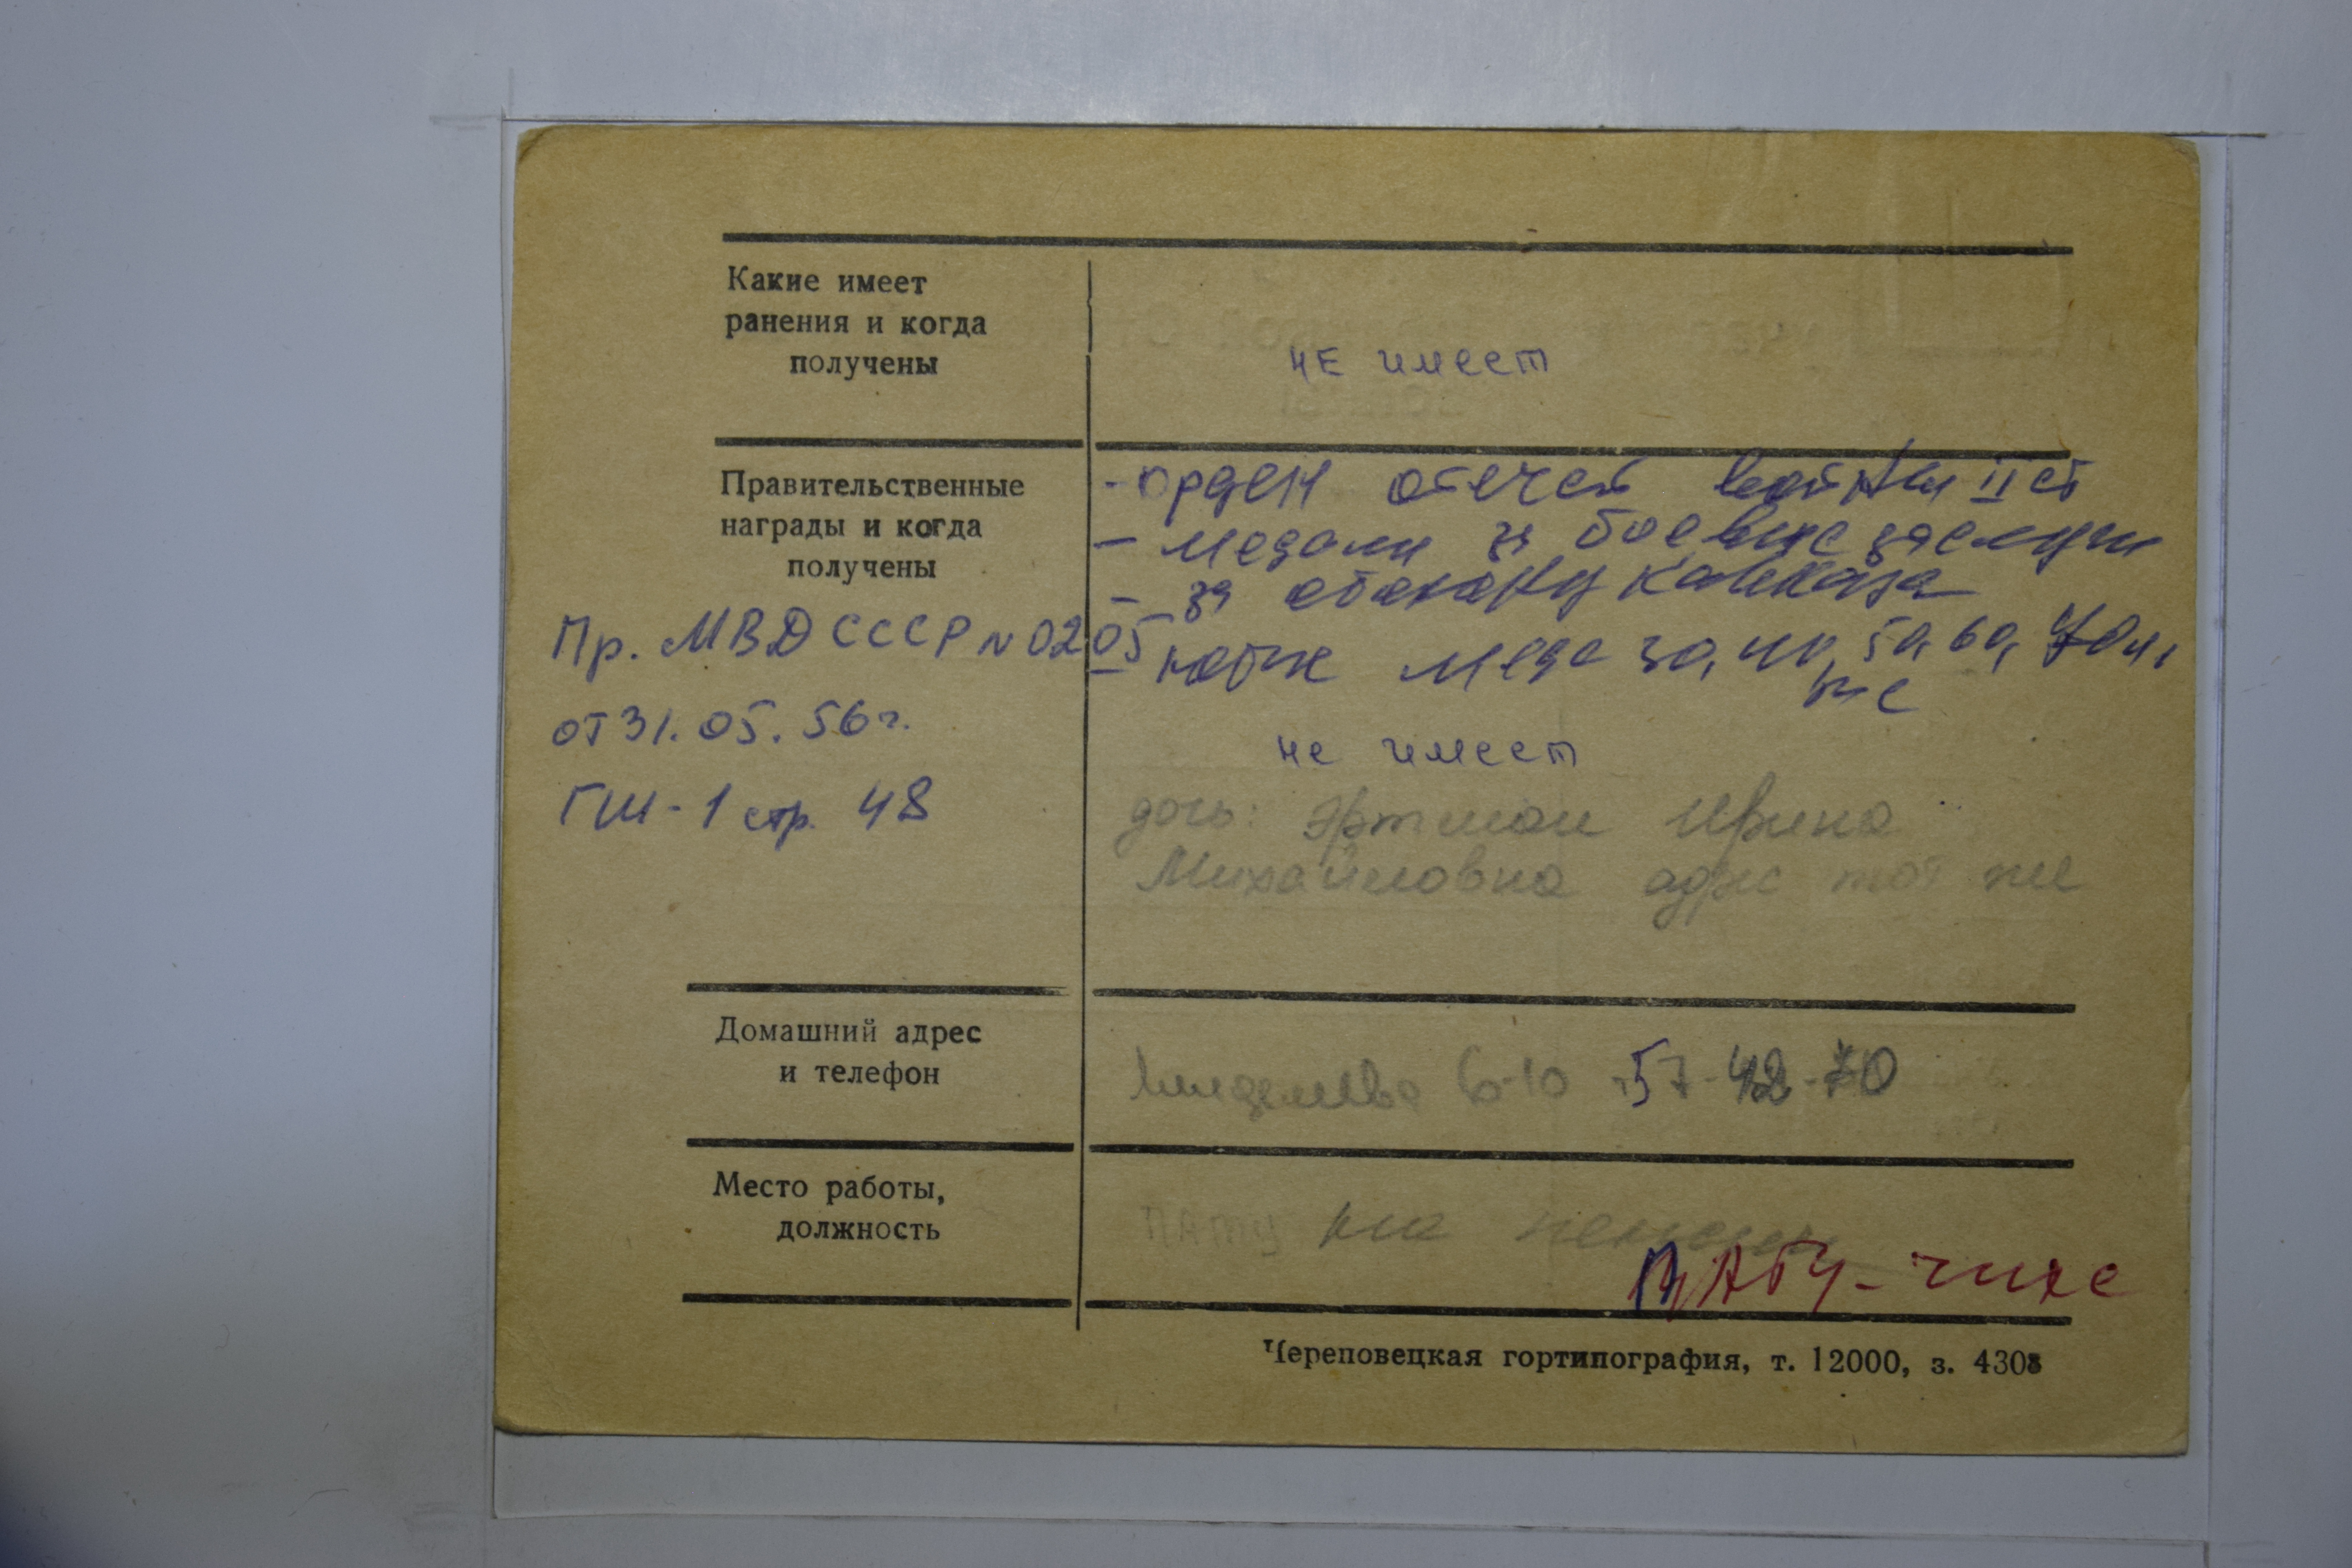 Какие имеет
ранения и когда
получены
НЕ имеет
Правительственные
награды и когда
получены
- орден отечест войны II ст
- медали за боевые заслуги
- за оборону Кавказа
- меда 30, 40, 50, 60, 70 л,
Пр. МВД СССР N 0205
от 31.05.56 г.
ГШ-1 стр. 48
не имеет
дочь: Эртман Ирина
Михайловна адрес тот же
Домашний адрес
и телефон
6-10 57-42-70
Место работы,
должность
ПАТУ на пенсии
Череповецкая гортипография, т. 12000, з. 4308